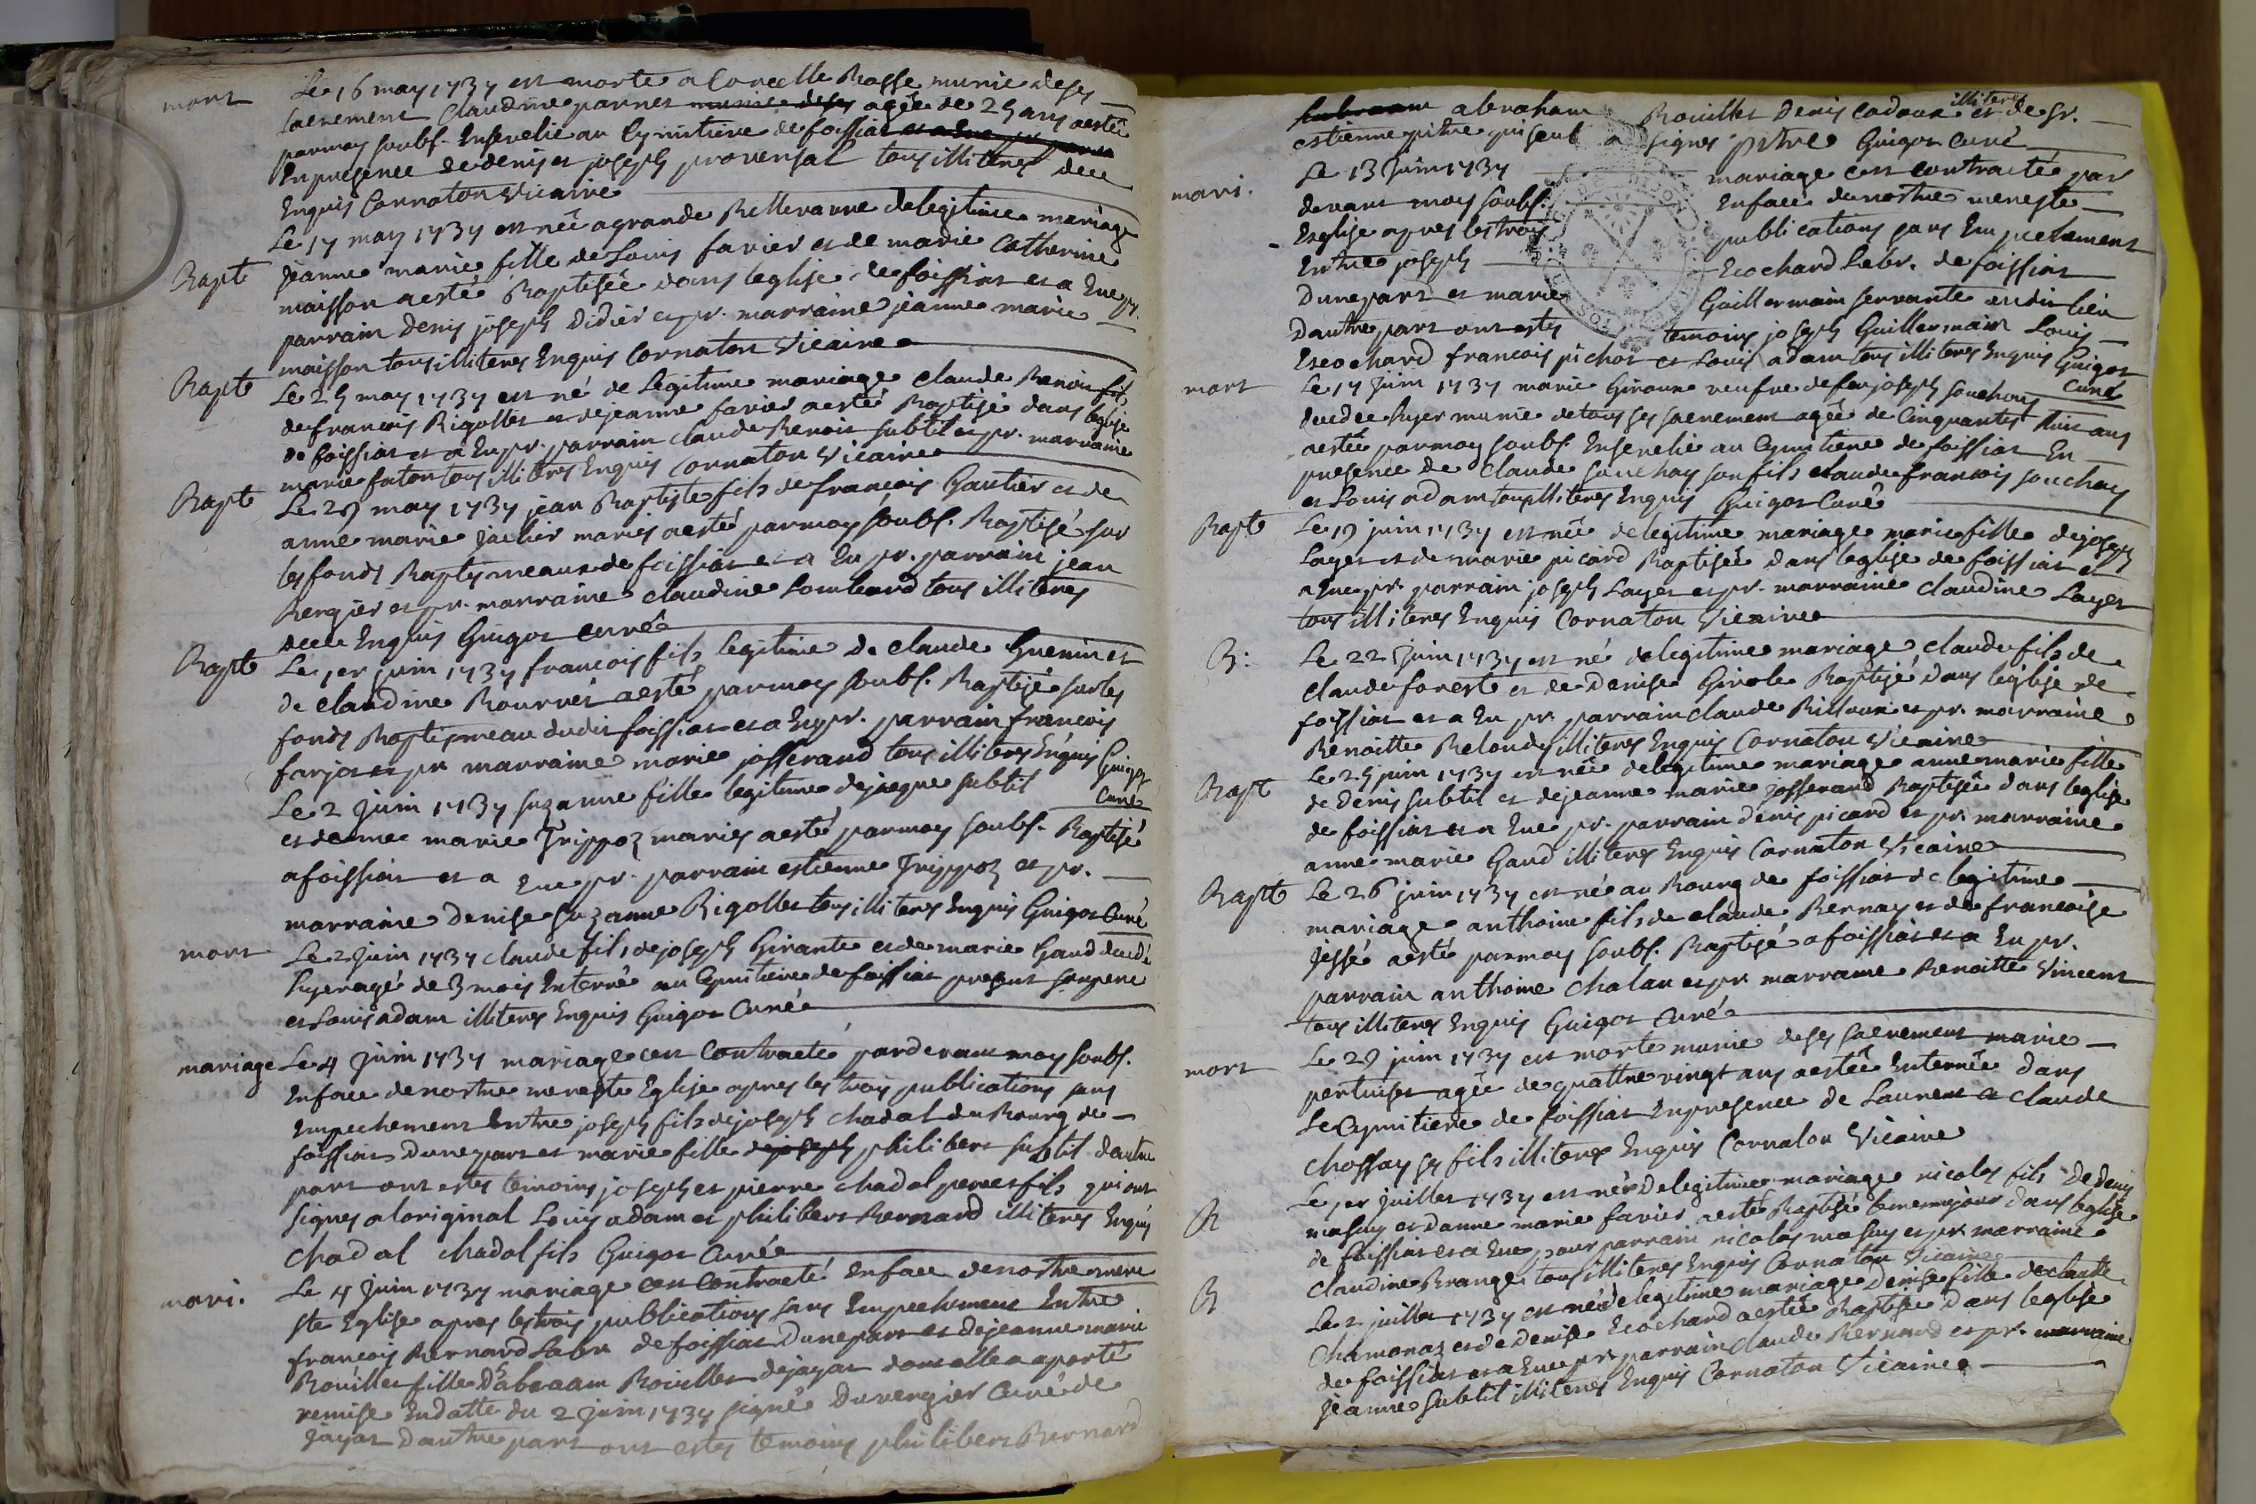 mort Le 16 may 1737 est morte a Corcelle Basse munie deses
sacrement Claudine pannet munie deses agée de 25 ans aesté
parmoy soubs. Ensevelie au Cymitiere de foissiat
En presence de denis et joseph provensal tous illiteres dece
Enquis Cornaton Vicaire
Le 17 may 1737 est née agrande Bellevavre delegitime mariage
Bapt jeanne marie fille de Louis favier et de marie Catherine
moisson aesté Baptisée dans leglise de foissiat et a Eue pr.
parrain denis joseph Didier et pr. marraine jeanne marie
moisson tous illiteres Enquis Cornaton Vicaire
Bapt Le 25 may 1737 est né de Légitime mariage claude Benoit fils
de francois Rigollet et dejeanne favier aesté Baptisé dans leglise
de foissiat et a Eu pr. parrain claude Benoit subtil et pr. marraine
marie faton tous illiteres Enquis Cornaton Vicaire
Bapt Le 29 may 1737 jean Baptiste fils de francois Gautier et de
anne marie jachier mariés aesté parmoy soubs. Baptisé sur
les fonds Baptismeaux de foissiat et a Eu pr. parrain jean
Bergier et pr. marraine claudine Lombard tous illiteres
dece Enquis Guigot curé
Bapt Le 1er juin 1737 francois fils legitime de claude Guenin et
de claudine Bourret aesté parmoy soubs. Baptisé surles
fonds Baptismeau dudit foissiat et a Eu pr. parrain francois
farjot et pr marraine marie josserand tous illiteres Enquis Guigot
Curé
Le 2 juin 1737 suzanne fille legitime dejacque subtil
et deanne marie Trippoz mariés aesté parmoy soubs. Baptisé
afoissiat et a Eue pr. parrain estienne Trippoz et pr.
marraine denise suzanne Rigollet tous illiteres Enquis Guigot Curé
mort Le 2 juin 1737 claude fils dejoseph Girante et de marie Gaud du dé
Huyer agé de 3 mois Enterré au Cymitiere de foissiat present sonpere
et Louis adam illiteres Enquis Guigot Curé
mariage Le 4 juin 1737 mariage cest Contracté pardevant moy soubs.
Enface denostre mere ste Eglise apres les trois publications sans
Empechement Entre joseph fils dejoseph chadal du Bourg de
foissiat dunepart et marie fille dejoseph philibert subtil dautre
part ont estes temoins joseph et pierre chadal pere et fils qui ont
signes aloriginal Louis adam et philibert Bernard illiteres Enquis
chadal chadal fils Guigot Curé
mari. Le 4 juin 1737 mariage cest Contracté Enface denostre mere
ste Eglise apres lestrois publications sans Empechement Entre
francois Bernard Labr de foissiat Dunepart et dejeanne marie
Rouillet fille Dabraam Rouillet dejayat dont elle a aporté
remise Endatte du 2 juin 1737 signé Duvergier Curé de
jayat dautre part ont estes temoins philibert Bernard
abraham Rouillet Denis Cadoux illiteres et de Sr.
estienne pitre qui seul a signes pitre Guigot Curé
mari. Le 13 juin 1737 mariage cest contracté par
devant moy soubs. Enface denostre mere ste
Eglise apres les trois publications sans Empechement
Entre joseph Ecochard Labr. de foissiat
Dunepart et marie Guillermain servante audit lieu
Dautrepart ont estes temoins joseph Guillermain Louis
Ecochard francois pichot et Louis adam tous illiteres Enquis Guigot
Curé
mort Le 17 juin 1737 marie Giraux veufve defeu joseph souchay
Huyer munie detous ses sacrement agée de Cinquante huit ans
aestée parmoy soubs. Ensevelie au Cymitiere de foissiat En
presence de Claude souchay sonfils claude francois souchay
et Louis adam tous illiteres Enquis Guigot Curé
Bapt Le 19 juin 1737 est née delegitime mariage marie fille dejoseph
Layet et de marie picard Baptisée dans leglise de foissiat et
a Eue pr. parrain joseph Layet et pr. marraine claudine Layet
tous illiteres Enquis Cornaton Vicaire
B: Le 22 juin 1737 est né delegitime mariage claude fils de
claude forest et de Denise Girole Baptisé dans leglise de
foissiat et a Eu pr parrain claude Billoux et pr. marraine
Benoitte Belondy illiteres Enquis Cornaton Vicaire
Bapt Le 25 juin 1737 est née delegitime mariage anne marie fille
de denis subtil et dejeanne marie josserand Baptisée dans leglise
de foissiat et a Eue pr. parrain denis picard et pr. marraine
anne marie Gaud illiteres Enquis Cornaton Vicaire
Bapt Le 26 juin 1737 est né au Bourg de foissiat de legitime
mariage anthoine fils de claude Bernay et de francoise
jessé aesté parmoy soubs. Baptisé afoissiat et a Eu pr.
parrain anthoine chalan et pr marraine Benoitte Vincent
tous illiteres Enquis Guigot Curé
mort Le 29 juin 1737 est morte munie deses sacrement marie
pertuiset agée de quattre vingt ans aestée Enterrée dans
Le Cymitiere de foissiat Enpresence de Laurent et claude
chossay ses fils illiteres Enquis Cornaton Vicaire
B Le 1er juillet 1737 est né Delegitime mariage nicolas fils de denis
masuy et danne marie favier aesté Baptisé lememejour dans leglise
de foissiat et a Eue pour parrain nicolas masuy et pr. marraine
claudine Brange tous illiteres Enquis Cornaton Vicaire
B Le 2 juillet 1737 est née delegitime mariage denise fille declaude
Chamonaz et de Denise Ecochard aestée Baptisée dans leglise
de foissiat et a Eue pr parrain claude Bernard et pr. marraine
jeanne subtil illiteres Enquis Cornaton Vicaire